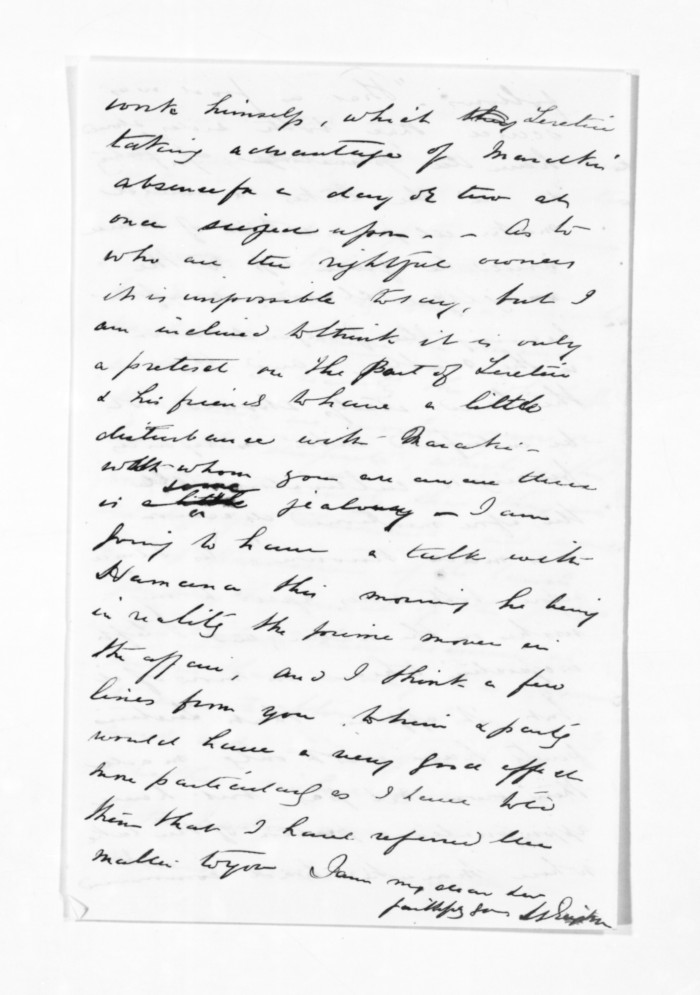 work himself, which Teretiu
taking advantage of Maraki
absence for a day or two at
once seized upon - - As to
who are the rightful owners
it is impossible to say, but I
am inclined to think it is only
a pretext on the Part of Teretiu
& his friends to have a little
disturbance with Maraki -
with whom you are aware there
is some jealousy - I am
going to have a talk with
Hamana this morning he being
in reality the prime mover in
the affair, and I think a few
lines from you to him & party
would have a very good effect
more particularly as I have told
them that I have referred the
matter to you I am my dear Sir
faithfully yours